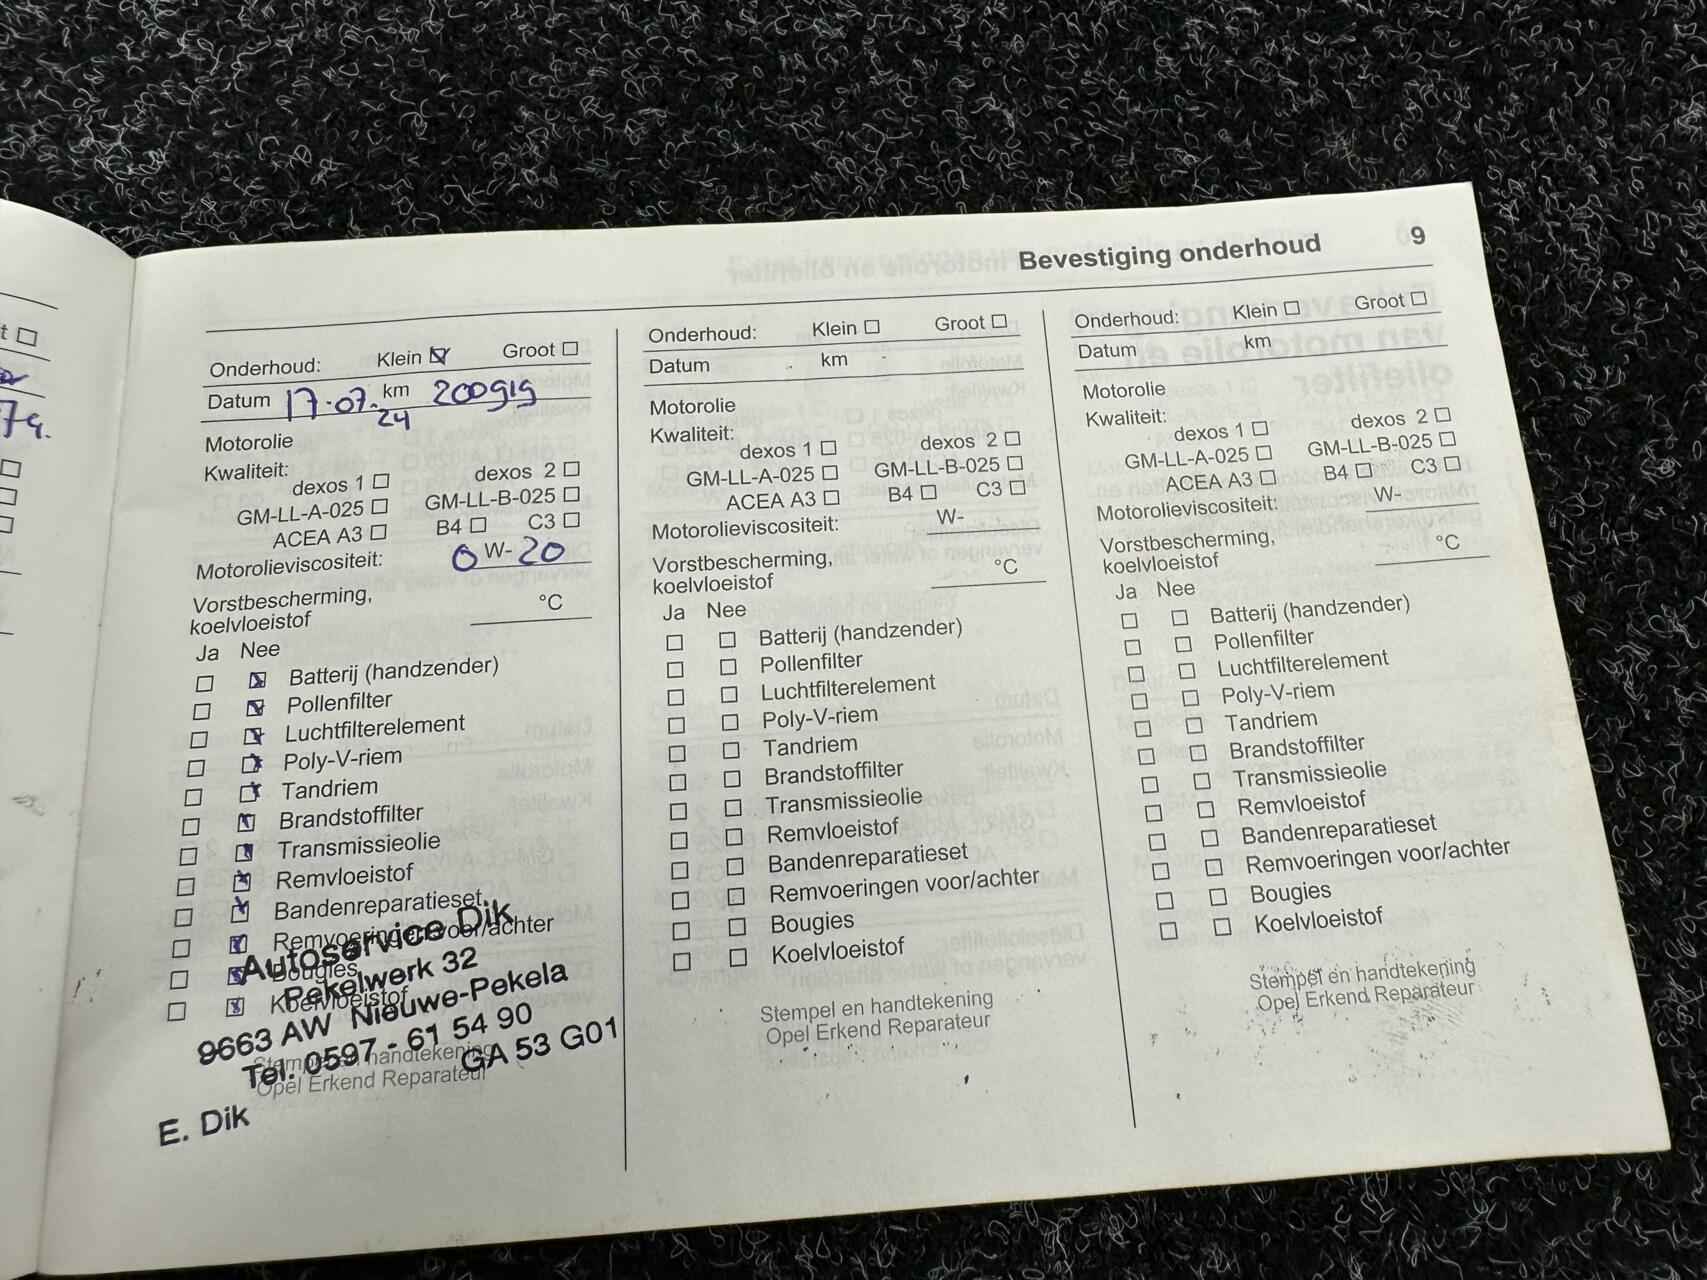 Bevestiging onderhoud 9
Onderhoud: Klein Groot
Datum 17-07-24 km 200919
Motorolie
Kwaliteit:
dexos 1 dexos 2
GM-LL-A-025 GM-LL-B-025
ACEA A3 B4 C3
Motorolieviscositeit: 0 W- 20
Vorstbescherming,
koelvloeistof °C
Ja Nee
Batterij (handzender)
Pollenfilter
Luchtfilterelement
Poly-V-riem
Tandriem
Brandstoffilter
Transmissieolie
Remvloeistof
Bandenreparatieset
Remvoeringen voor/achter
Bougies
Koelvloeistof
Stempel en handtekening
Opel Erkend Reparateur
Autoservice Dik
Pekelwerk 32
9663 AW Nieuwe-Pekela
Tel. 0597 - 61 54 90
GA 53 G01
E. Dik
Onderhoud: Klein Groot
Datum km
Motorolie
Kwaliteit:
dexos 1 dexos 2
GM-LL-A-025 GM-LL-B-025
ACEA A3 B4 C3
Motorolieviscositeit: W-
Vorstbescherming,
koelvloeistof °C
Ja Nee
Batterij (handzender)
Pollenfilter
Luchtfilterelement
Poly-V-riem
Tandriem
Brandstoffilter
Transmissieolie
Remvloeistof
Bandenreparatieset
Remvoeringen voor/achter
Bougies
Koelvloeistof
Stempel en handtekening
Opel Erkend Reparateur
Onderhoud: Klein Groot
Datum km
Motorolie
Kwaliteit:
dexos 1 dexos 2
GM-LL-A-025 GM-LL-B-025
ACEA A3 B4 C3
Motorolieviscositeit: W-
Vorstbescherming,
koelvloeistof °C
Ja Nee
Batterij (handzender)
Pollenfilter
Luchtfilterelement
Poly-V-riem
Tandriem
Brandstoffilter
Transmissieolie
Remvloeistof
Bandenreparatieset
Remvoeringen voor/achter
Bougies
Koelvloeistof
Stempel en handtekening
Opel Erkend Reparateur